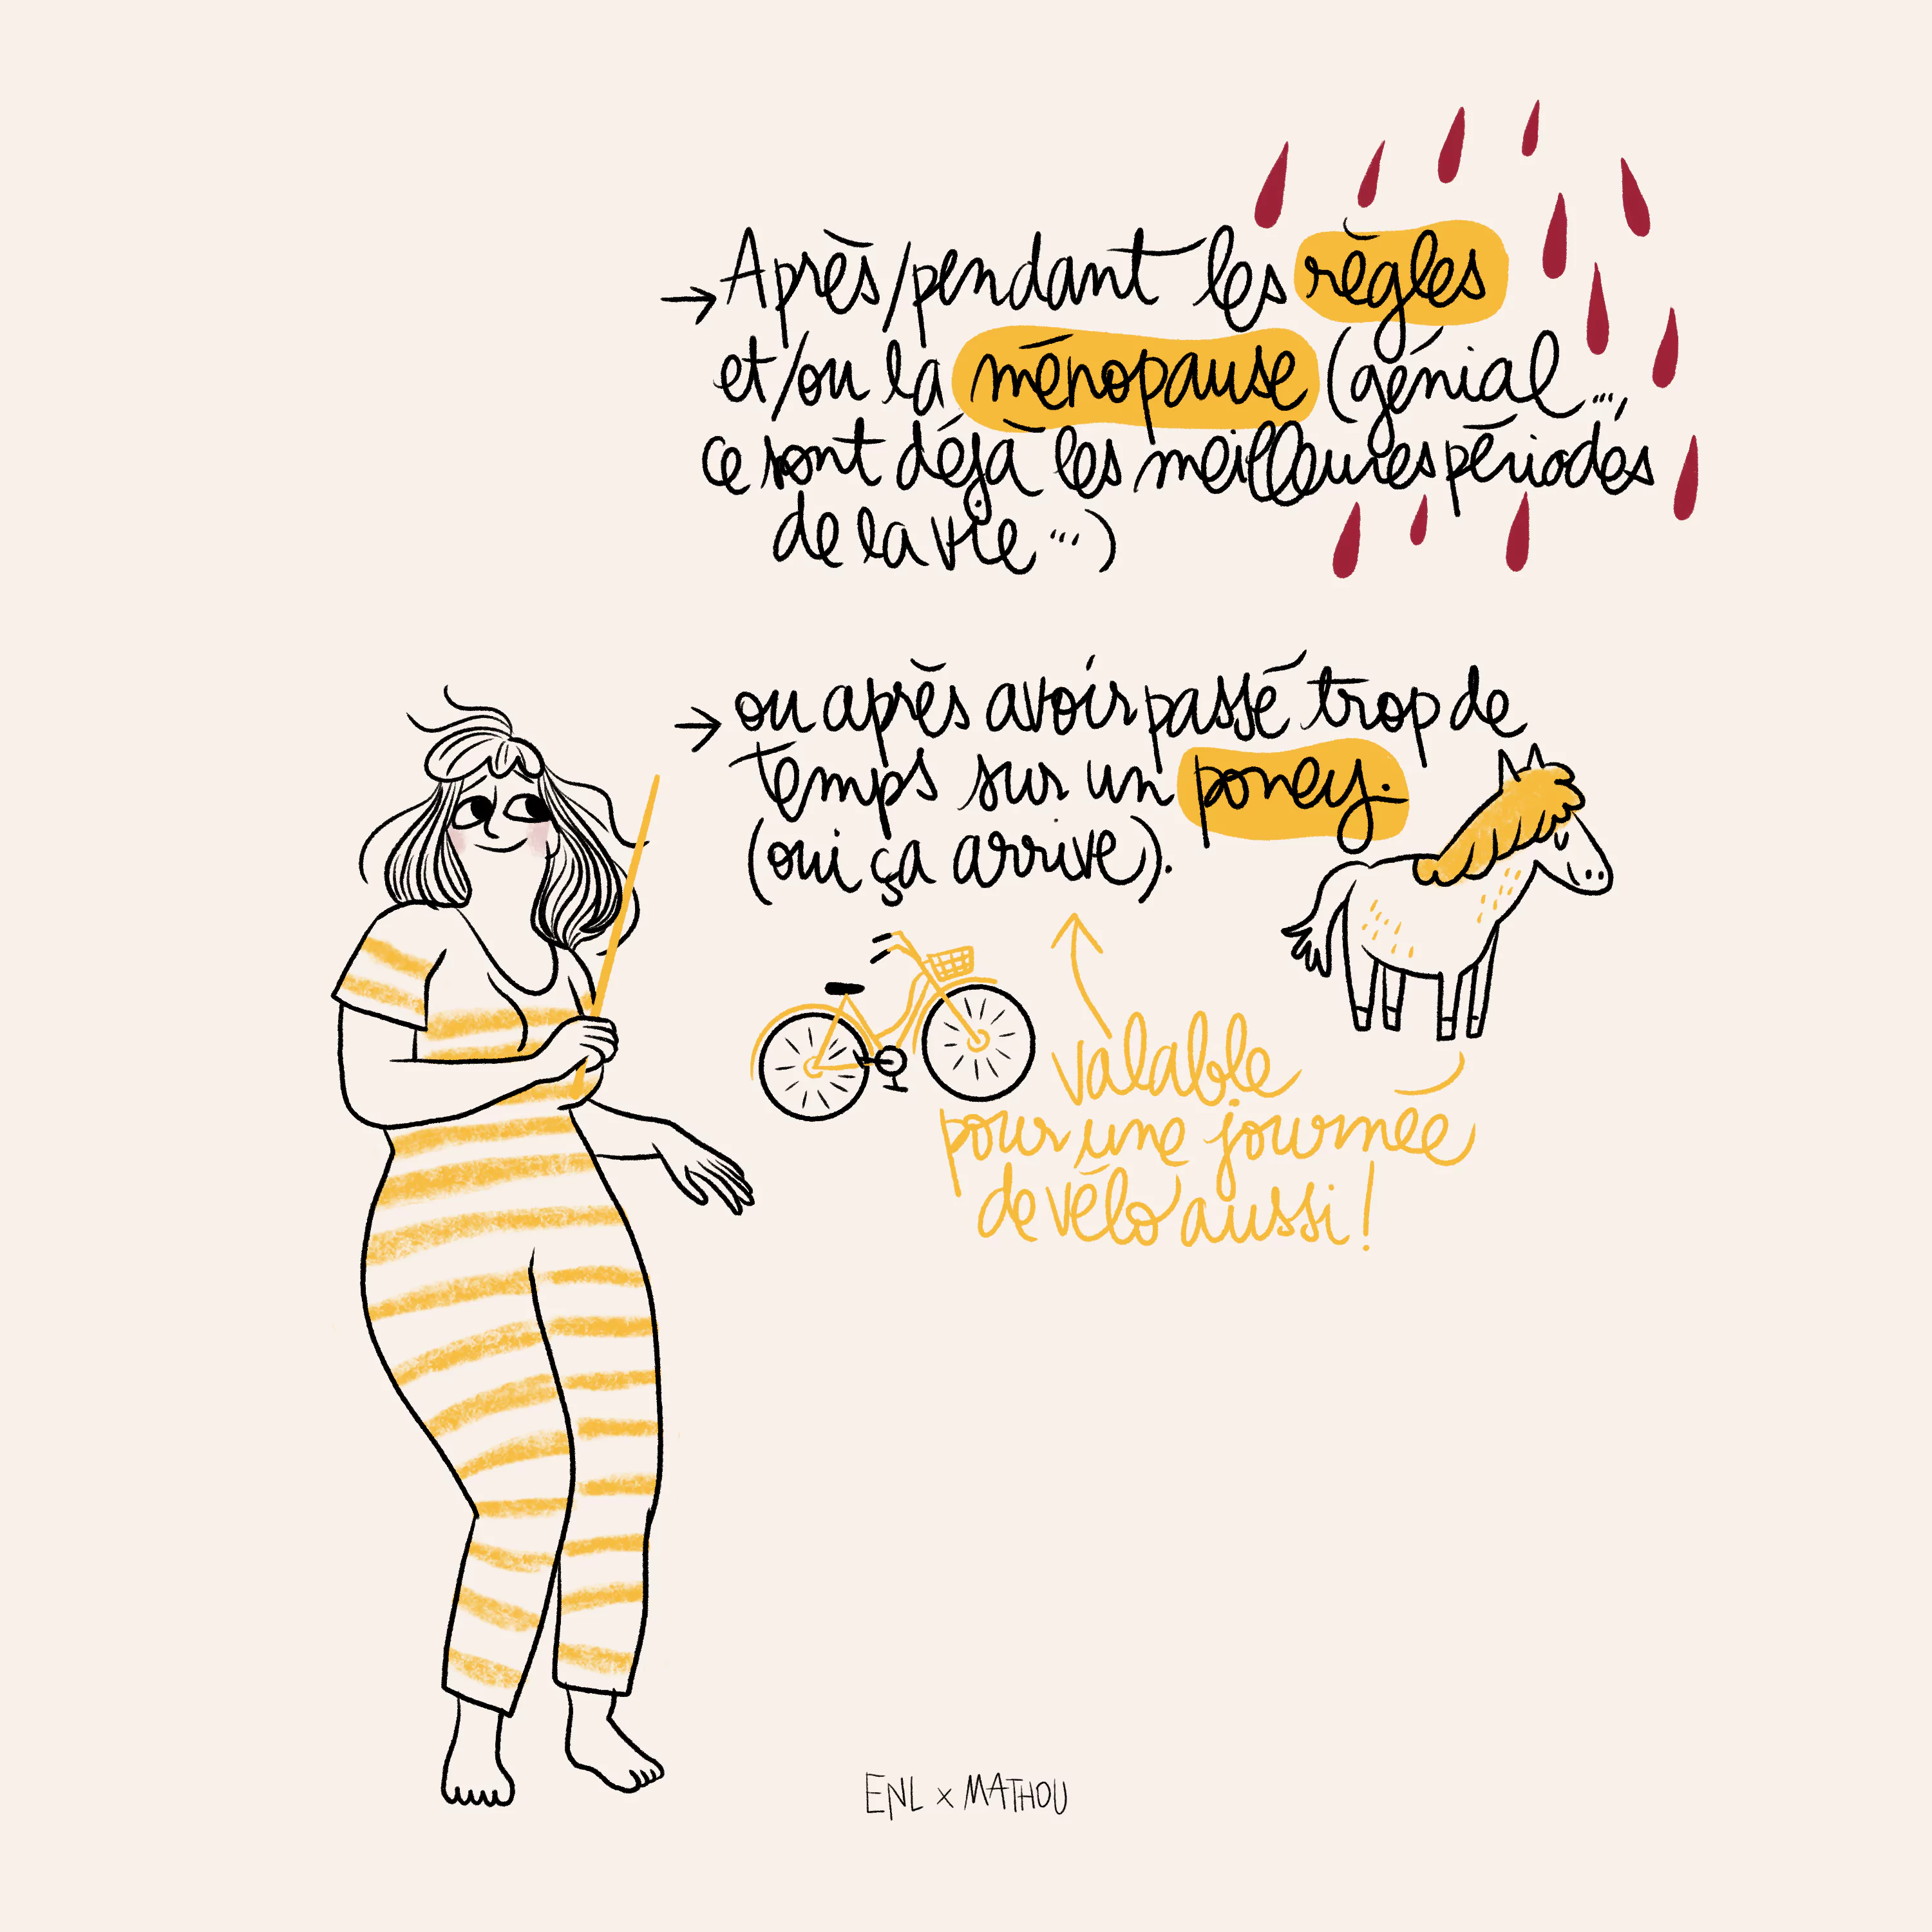 → Après/pendant les règles
et/ou la ménopause (génial...,
ce sont déjà les meilleures périodes
de la vie ...)
→ ou après avoir passé trop de
temps sur un poney.
(oui ça arrive).
valable
pour une journée
de vélo aussi !
ENL x MATHOU